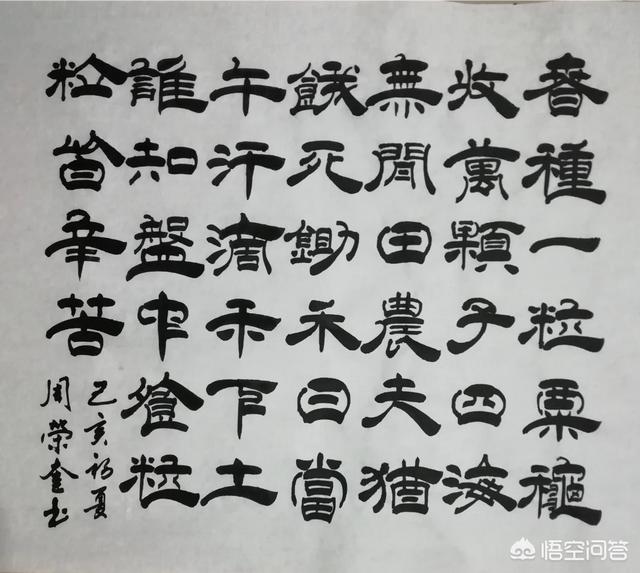 春種一粒粟龝
收萬顆子四海
無閒田農夫猶
餓死鋤禾日當
午汗滴禾下土
誰知盤中餐粒
粒皆辛苦
己亥初夏
周榮奎书
悟空问答